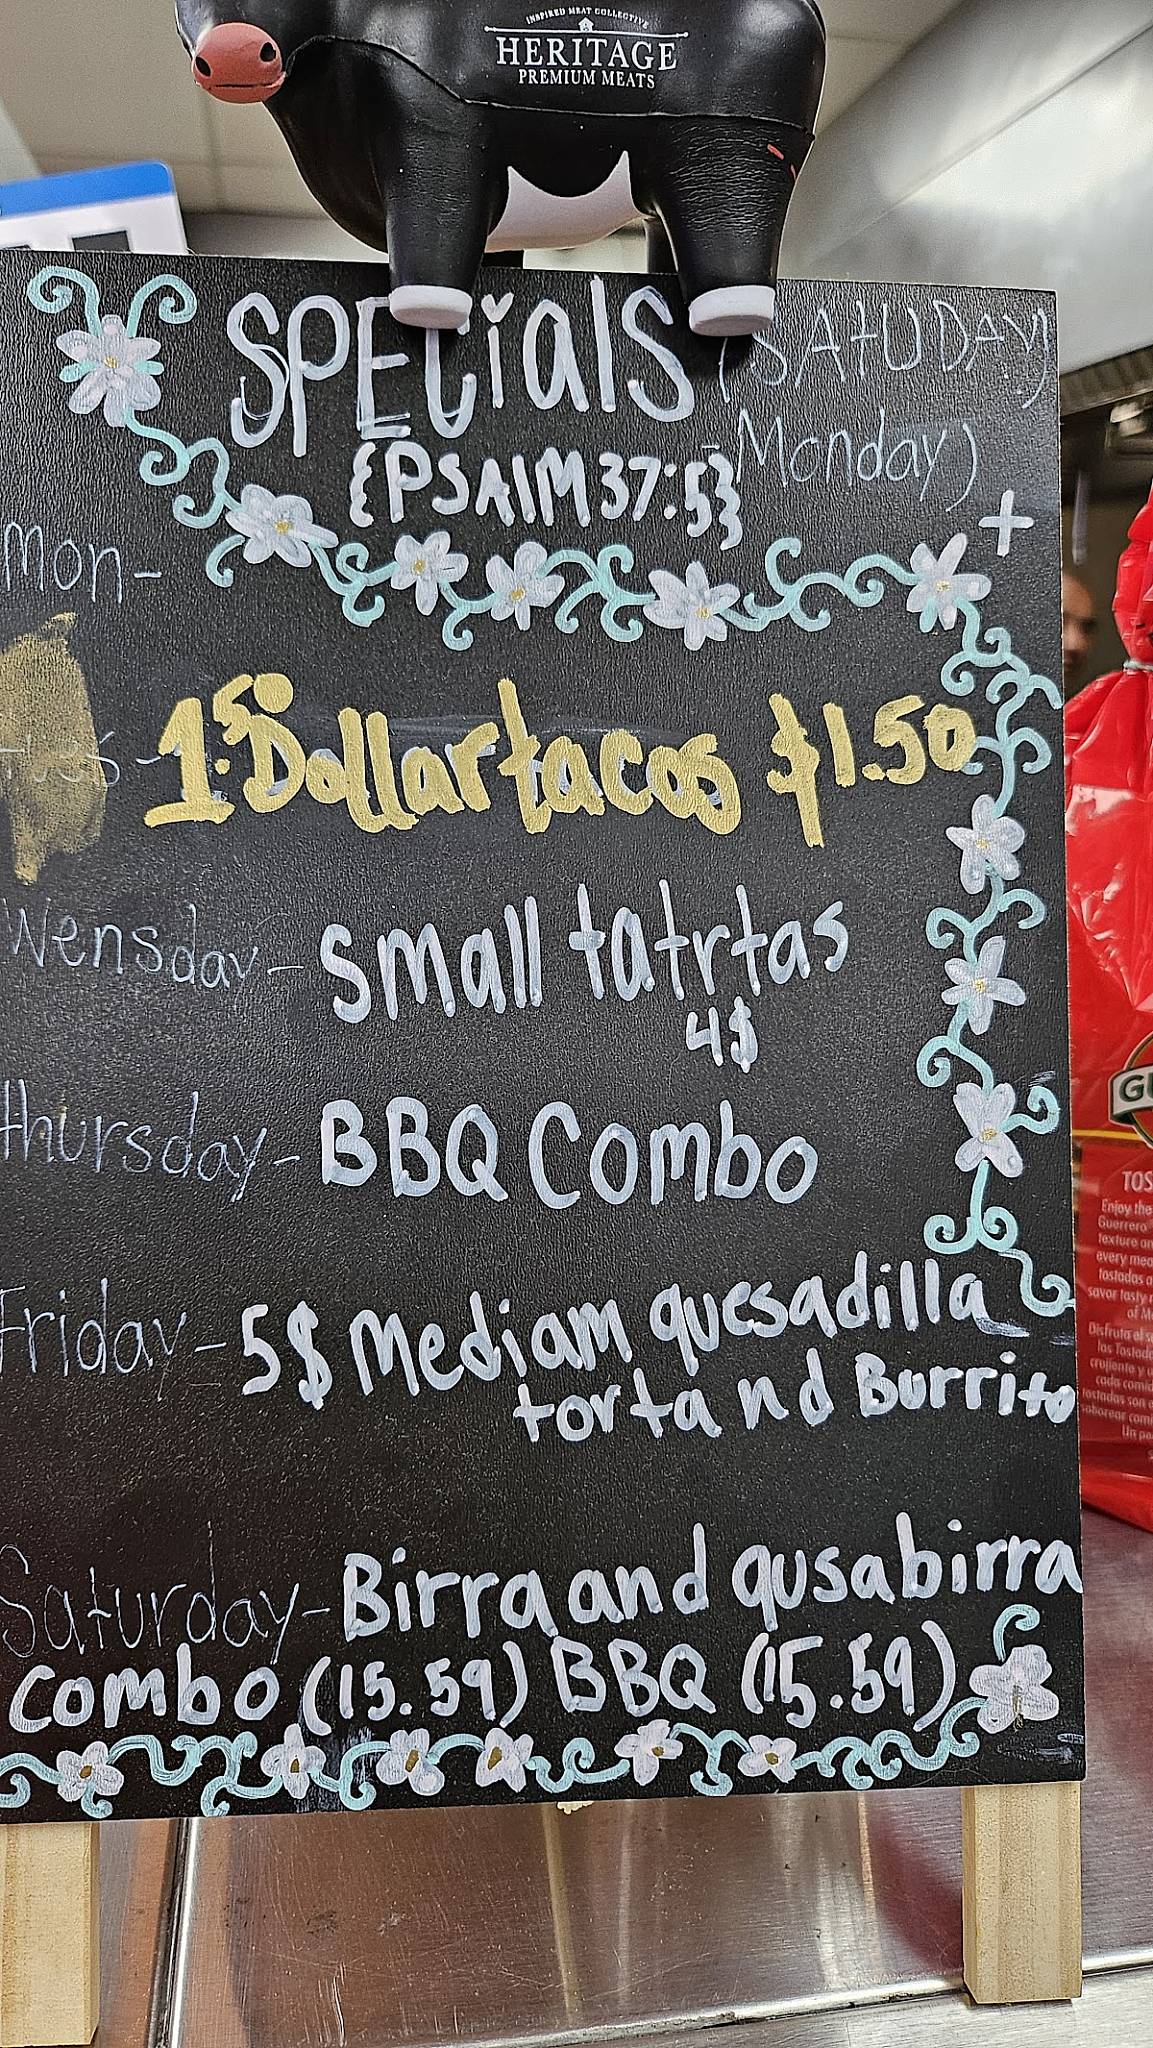 INSPIRED MEAT COLLECTIVE
HERITAGE
PREMIUM MEATS
SPECialS (SATUDAY
{PSAlM 37:5} -Monday)
+
mon-
tues - 1.50 Dollar tacos $1.50
Wensday - small tatrtas
4$
thursday - BBQ Combo
Friday - 5$ Mediam quesadilla
torta nd Burrito
Saturday - Birra and qusabirra
combo (15.59) BBQ (15.59)
GU
TOS
Enjoy the
Guerrero
texture an
every mea
tostadas a
savor tasty
of M
Disfruta el s
las Tostada
crujiente y
cada comid
tostadas son
saborear comi
Un pe